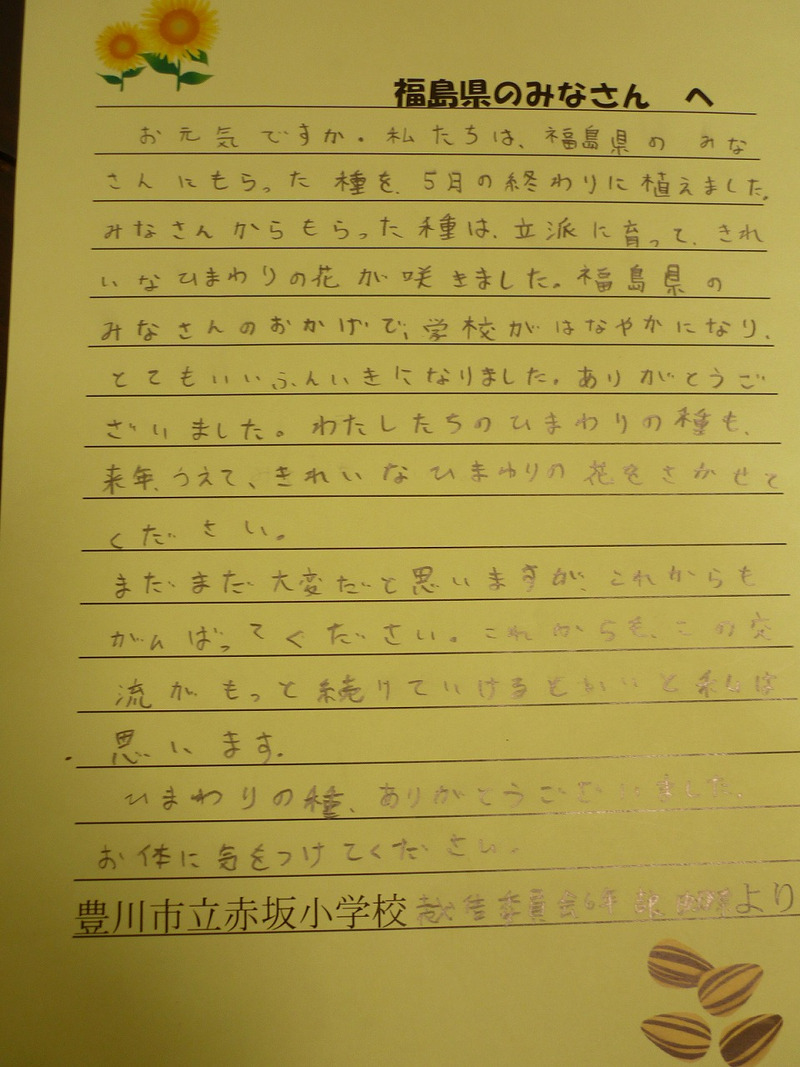 福島県のみなさん へ
お元気ですか。私たちは、福島県のみな
さんにもらった種を、5月の終わりに植えました。
みなさんからもらった種は、立派に育って、きれ
いなひまわりの花が咲きました。福島県の
みなさんのおかげで、学校がはなやかになり、
とてもいいふんいきになりました。ありがとうご
ざいました。わたしたちのひまわりの種も、
来年、うえて、きれいなひまわりの花をさかせて
ください。
まだまだ大変だと思いますが、これからも
がんばってください。これからも、この交
流がもっと続けていけるといいと私は
思います。
ひまわりの種、ありがとうございました。
お体に気をつけてください。
豊川市立赤坂小学校 委員会6年 より